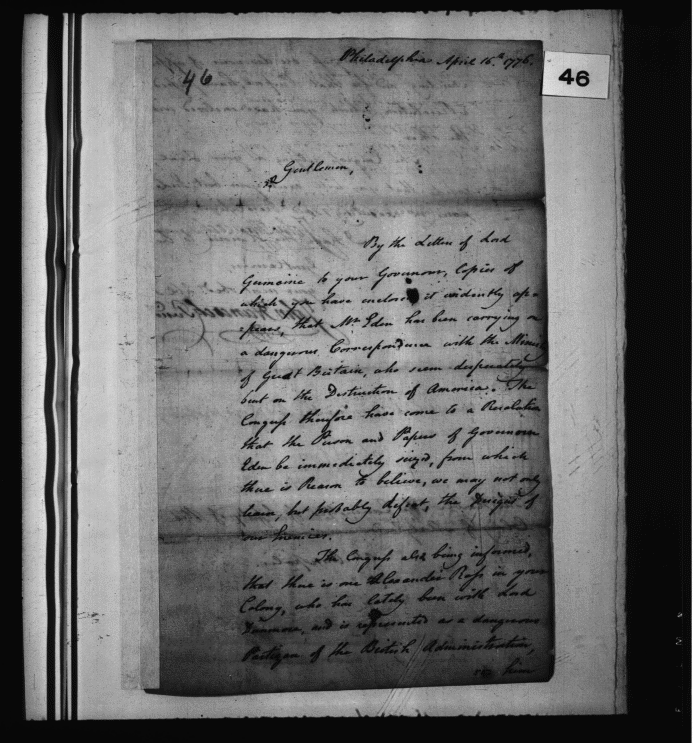 Philadelphia April 16th. 1776.
46
46
Gentlemen,
By the Letters of Lord
Germaine to your Governour, Copies of
which you have enclosed it evidently ap=
=pears, that Mr. Eden has been carrying on
a dangerous Correspondence with the Minis
of Great Britain, who seem desperately
bent on the Destruction of America. The
Congress therefore have come to a Resolution
that the Person and Papers of Governour
Eden be immediately seized, from which
there is Reason to believe, we may not only
learn, but probably defeat, the Designs of
our Enemies.
The Congress also being informed,
that there is one Alexander Ross in your
Colony, who has lately been with Lord
Dunmore, and is represented as a dangerous
Partizan of the British Administration,
him